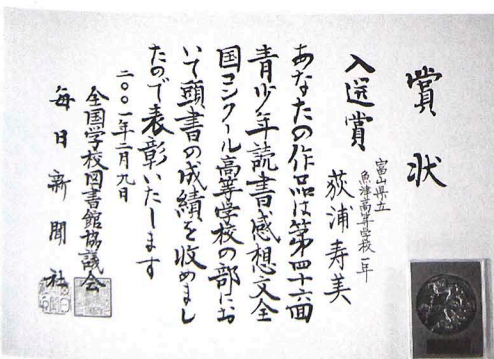 賞状
入選賞
富山県立
魚津高等学校二年
荻浦寿美
あなたの作品は第四十六回
青少年読書感想文全
国コンクール高等学校の部にお
いて頭書の成績を收めまし
たので表彰いたします
二〇〇一年二月九日
全国学校図書館協議会
毎日新聞社